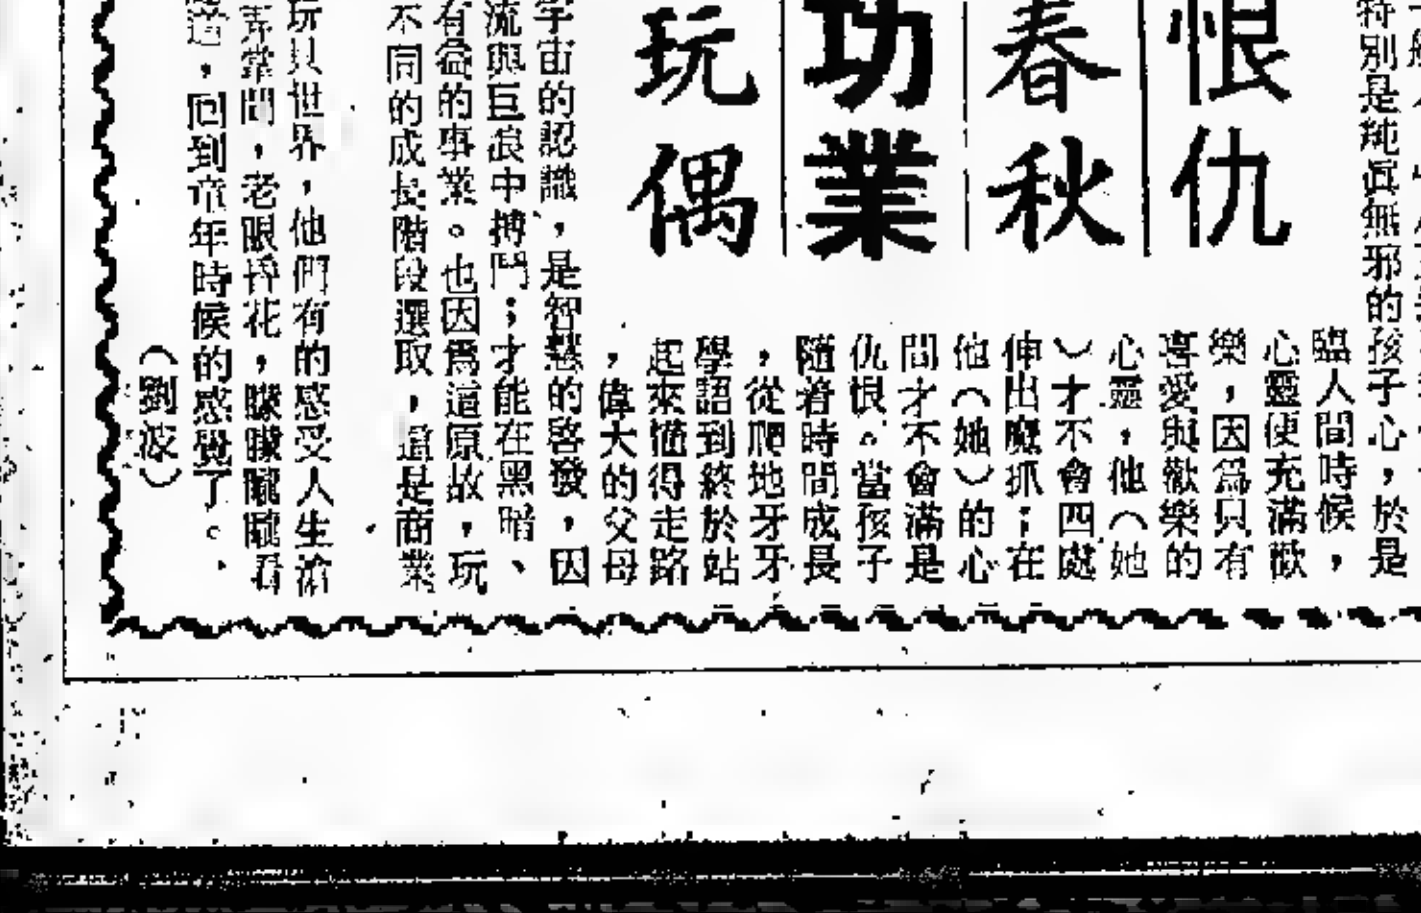 恨仇
春秋
功業
玩偶
特別是純眞無邪的孩子心，於是
臨人間時候，
心靈便充滿歡
樂，因爲只有
喜愛與歡樂的
心靈，他（她
）才不會四處
伸出魔抓；在
他（她）的心
間才不會滿是
仇恨。當孩子
隨着時間成長
，從爬地牙牙
學語到終於站
起來懂得走路
，偉大的父母
宇宙的認識，是智慧的啓發，因
流與巨浪中搏鬥；才能在黑暗、
有益的事業。也因爲這原故，玩
不同的成長階段選取，這是商業
玩具世界，他們有的感受人生滄
老眼昏花，矇矇矓矓看
道，回到童年時候的感覺了。
（劉波）